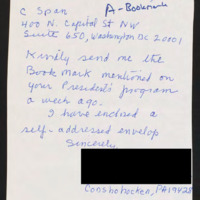 C Span
A-Bookmark
400 N. Capitol St NW
Suite 650, Washington DC 20001
Kindly send me the
Book Mark mentioned on
your President's program
a week ago.
I have enclosed a
self-addressed envelop
Sincerely
Conshohocken, PA 19428